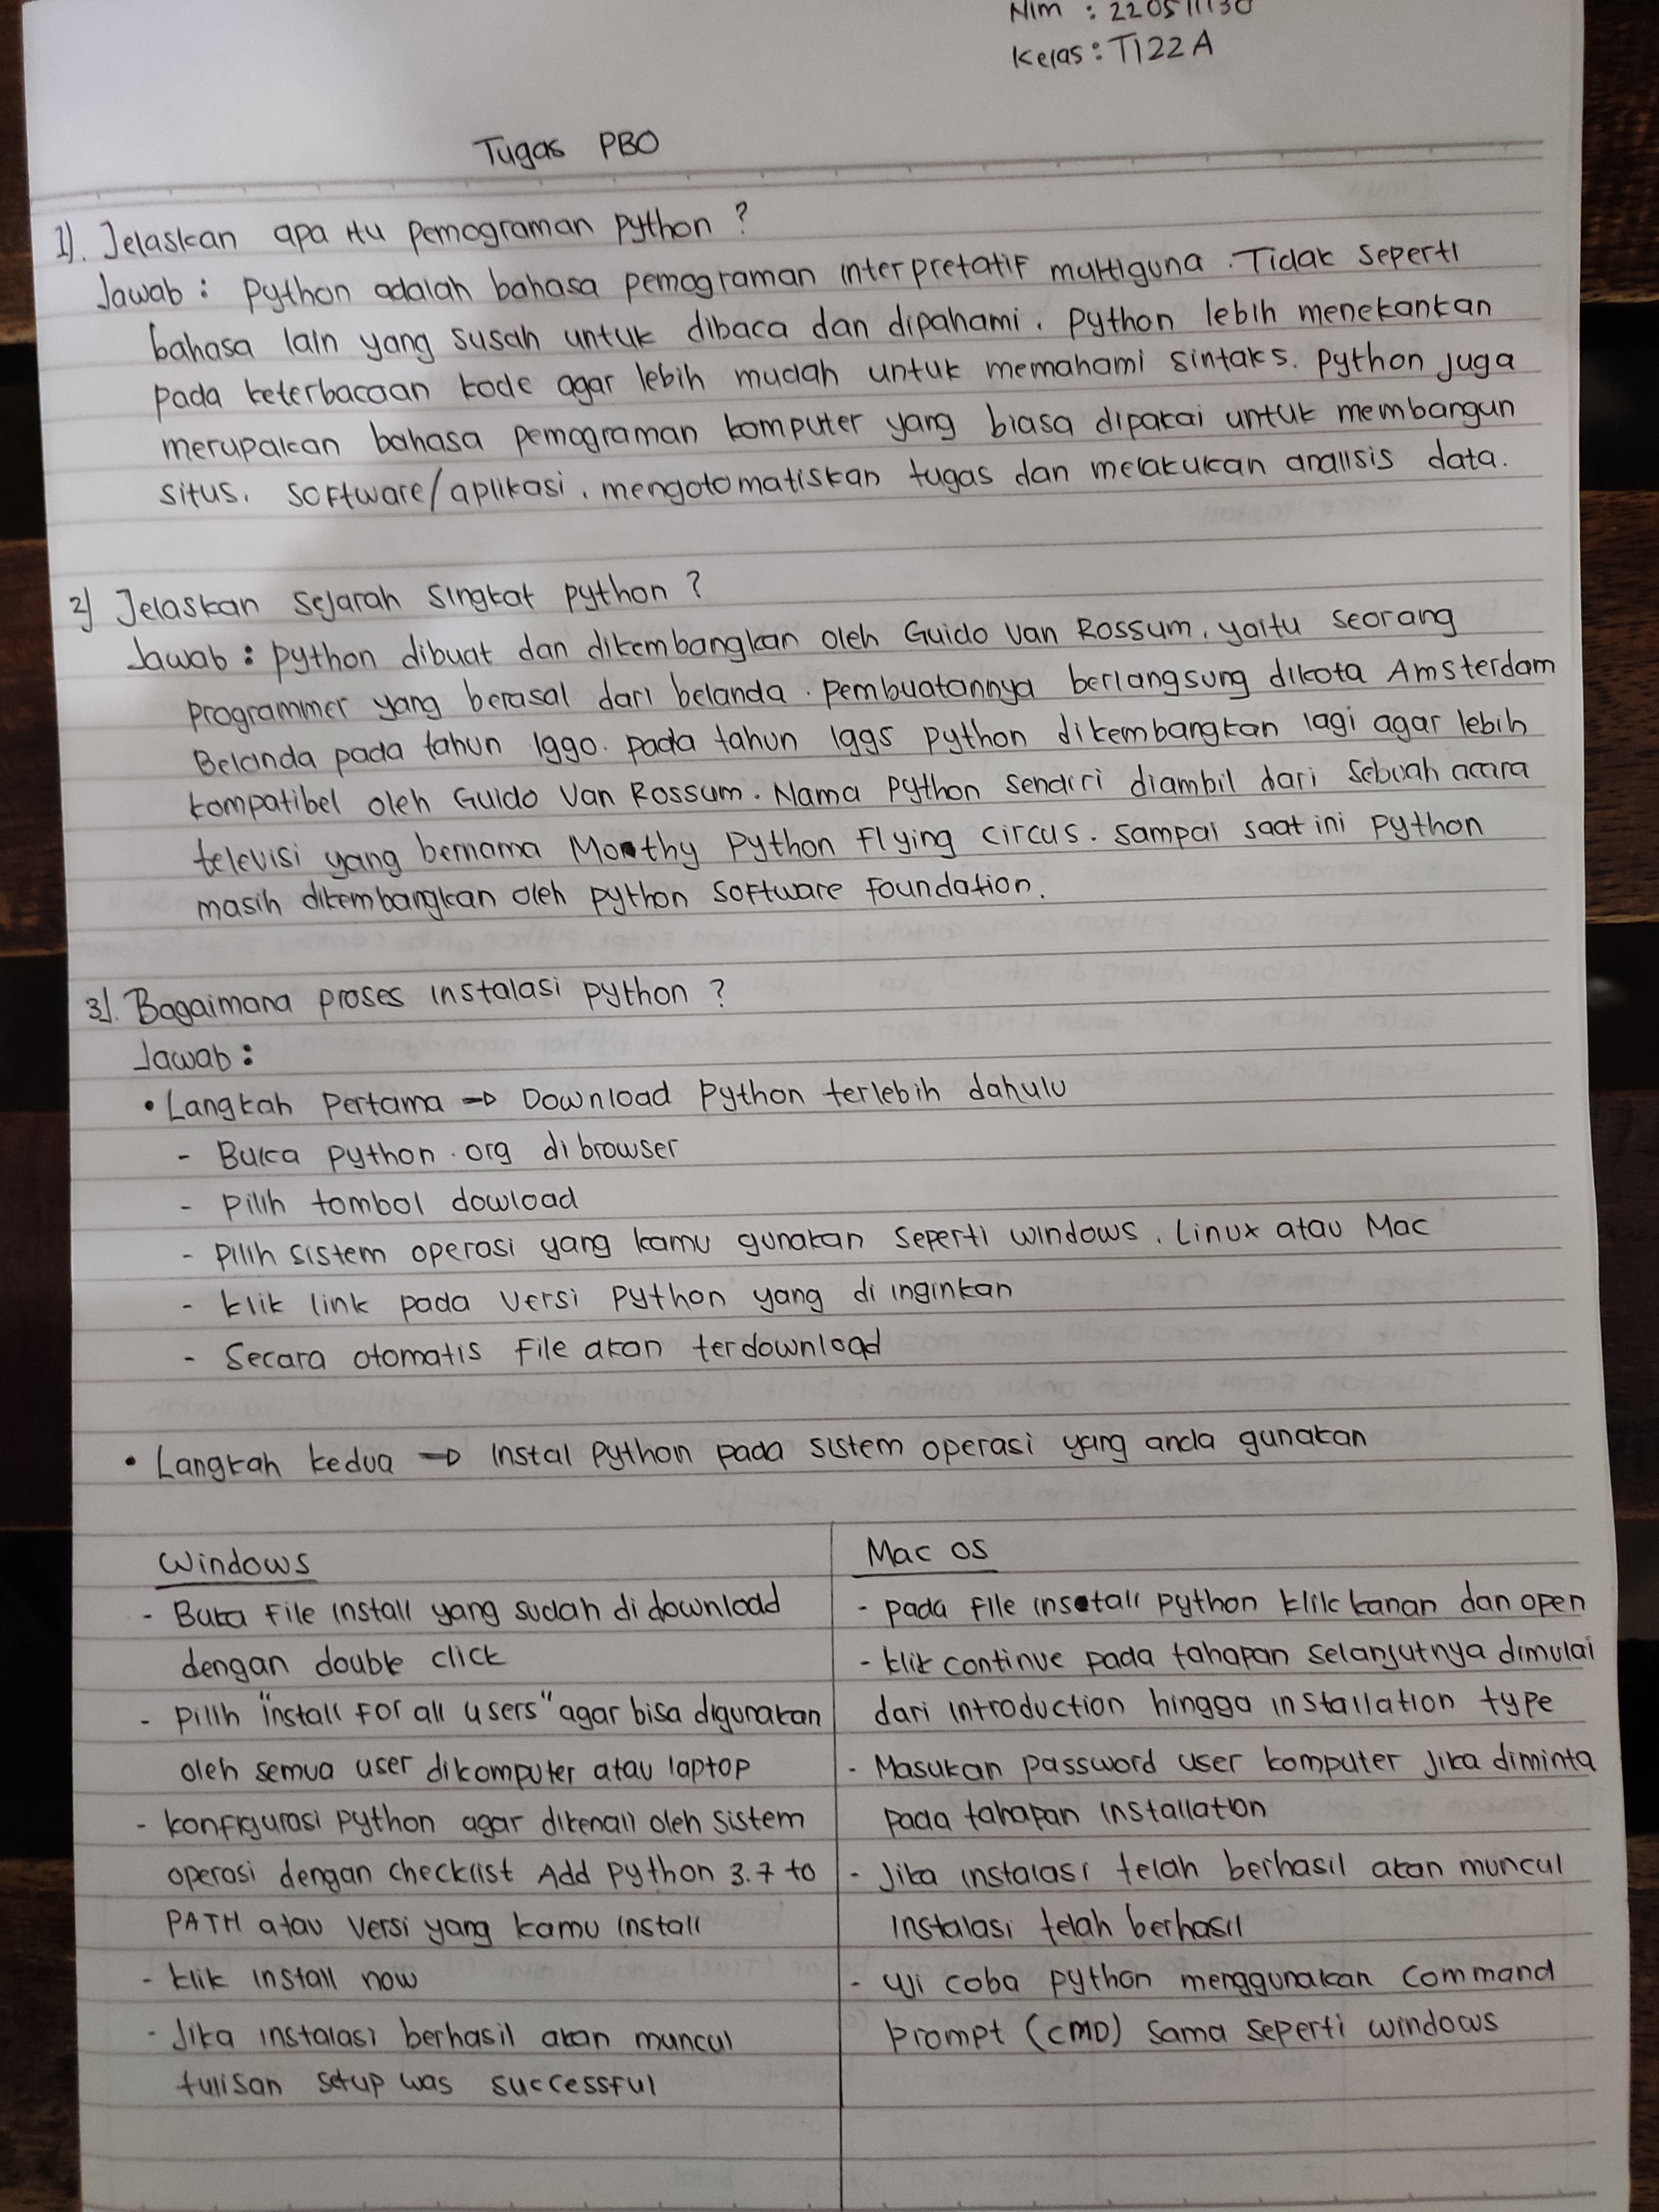 Nim : 220511130
Kelas : TI22A
Tugas PBO
1). Jelaskan apa itu pemograman python ?
Jawab : python adalah bahasa pemograman interpretatif multiguna. Tidak seperti
bahasa lain yang susah untuk dibaca dan dipahami, python lebih menekankan
pada keterbacaan kode agar lebih mudah untuk memahami sintaks. python juga
merupakan bahasa pemograman komputer yang biasa dipakai untuk membangun
situs, software/aplikasi, mengotomatiskan tugas dan melakukan analisis data.
2) Jelaskan sejarah singkat python ?
Jawab : python dibuat dan dikembangkan oleh Guido Van Rossum, yaitu seorang
programmer yang berasal dari belanda. pembuatannya berlangsung dikota Amsterdam
Belanda pada tahun 1990. pada tahun 1995 python dikembangkan lagi agar lebih
kompatibel oleh Guido Van Rossum. Nama python sendiri diambil dari sebuah acara
televisi yang bernama Monthy Python Flying circus. sampai saat ini python
masih dikembangkan oleh python software foundation.
3). Bagaimana proses instalasi python ?
Jawab :
• Langkah pertama → Download python terlebih dahulu
- Buka python.org di browser
- pilih tombol dowload
- pilih sistem operasi yang kamu gunakan seperti windows, Linux atau Mac
- klik link pada versi python yang di inginkan
- Secara otomatis file akan terdownload
• Langkah kedua → instal python pada sistem operasi yang anda gunakan
Windows
- Buka file install yang sudah di download
dengan double click
- pilih "install for all users" agar bisa digunakan
oleh semua user dikomputer atau laptop
- konfigurasi python agar dikenali oleh sistem
operasi dengan checklist Add python 3.7 to
PATH atau versi yang kamu install
- klik install now
- Jika instalasi berhasil akan muncul
tulisan setup was successful
Mac os
- pada file install python klik kanan dan open
- klik continue pada tahapan selanjutnya dimulai
dari introduction hingga installation type
- Masukan password user komputer jika diminta
pada tahapan installation
- Jika instalasi telah berhasil akan muncul
instalasi telah berhasil
- uji coba python menggunakan command
prompt (CMD) sama seperti windows